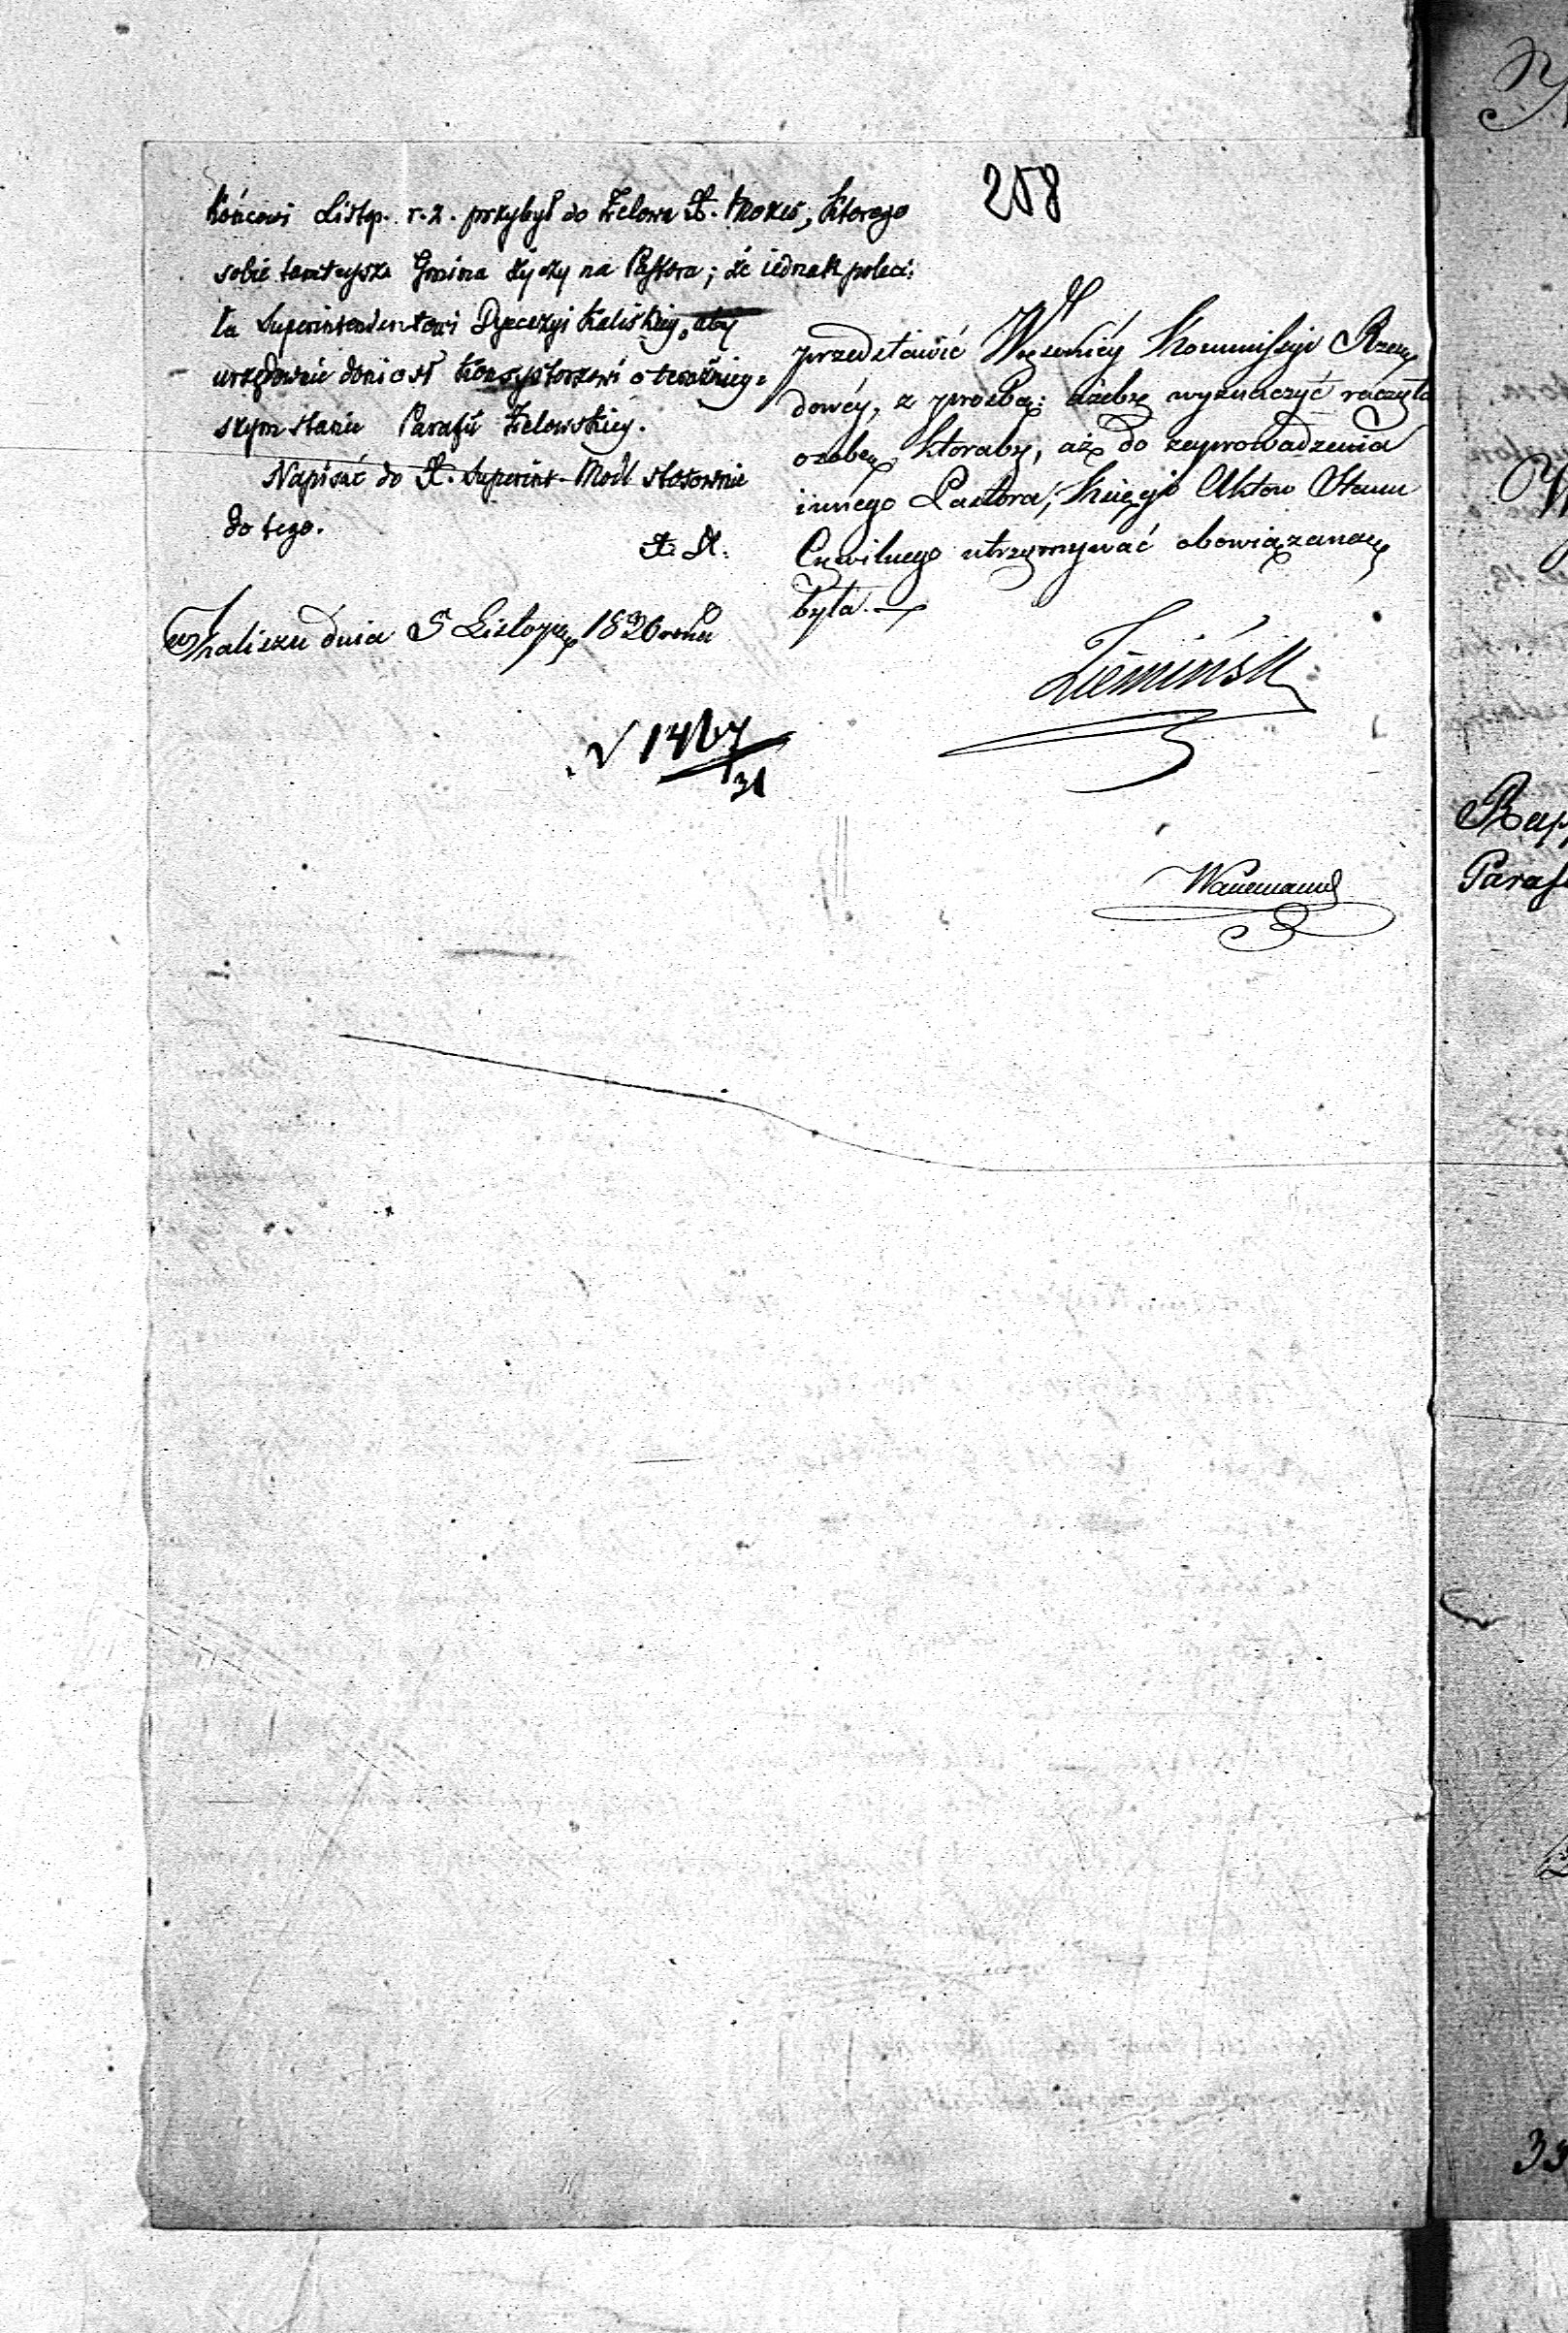 258
końcowi Listop. r. z. przybył do Zelowa X. Mozes, którego
sobie tamteysza Gmina życzy na Pastora; że iednak poleci-
ła Superintendentowi Dyecezyi Kaliskiey, aby
urzędownie doniosł Konsystorzowi o teraźniey-
szym stanie Parafii Zelowskiey.
Napisać do X. Superint. Modl stosownie
do tego.
w Kaliszu dnia 5 Listopa 1830 roku
N 1467
31
przedstawić Wysokiéy Kommissyi Rzą-
dowéy, z prośbą: ażeby wyznaczyć raczyła
osobę, któraby, aż do zaprowadzenia
innego Pastora, Księgi Aktow Stanu
Cywilnego utrzymywać obowiązaną
była.
Ziemińsk
Rap
Paraf
33